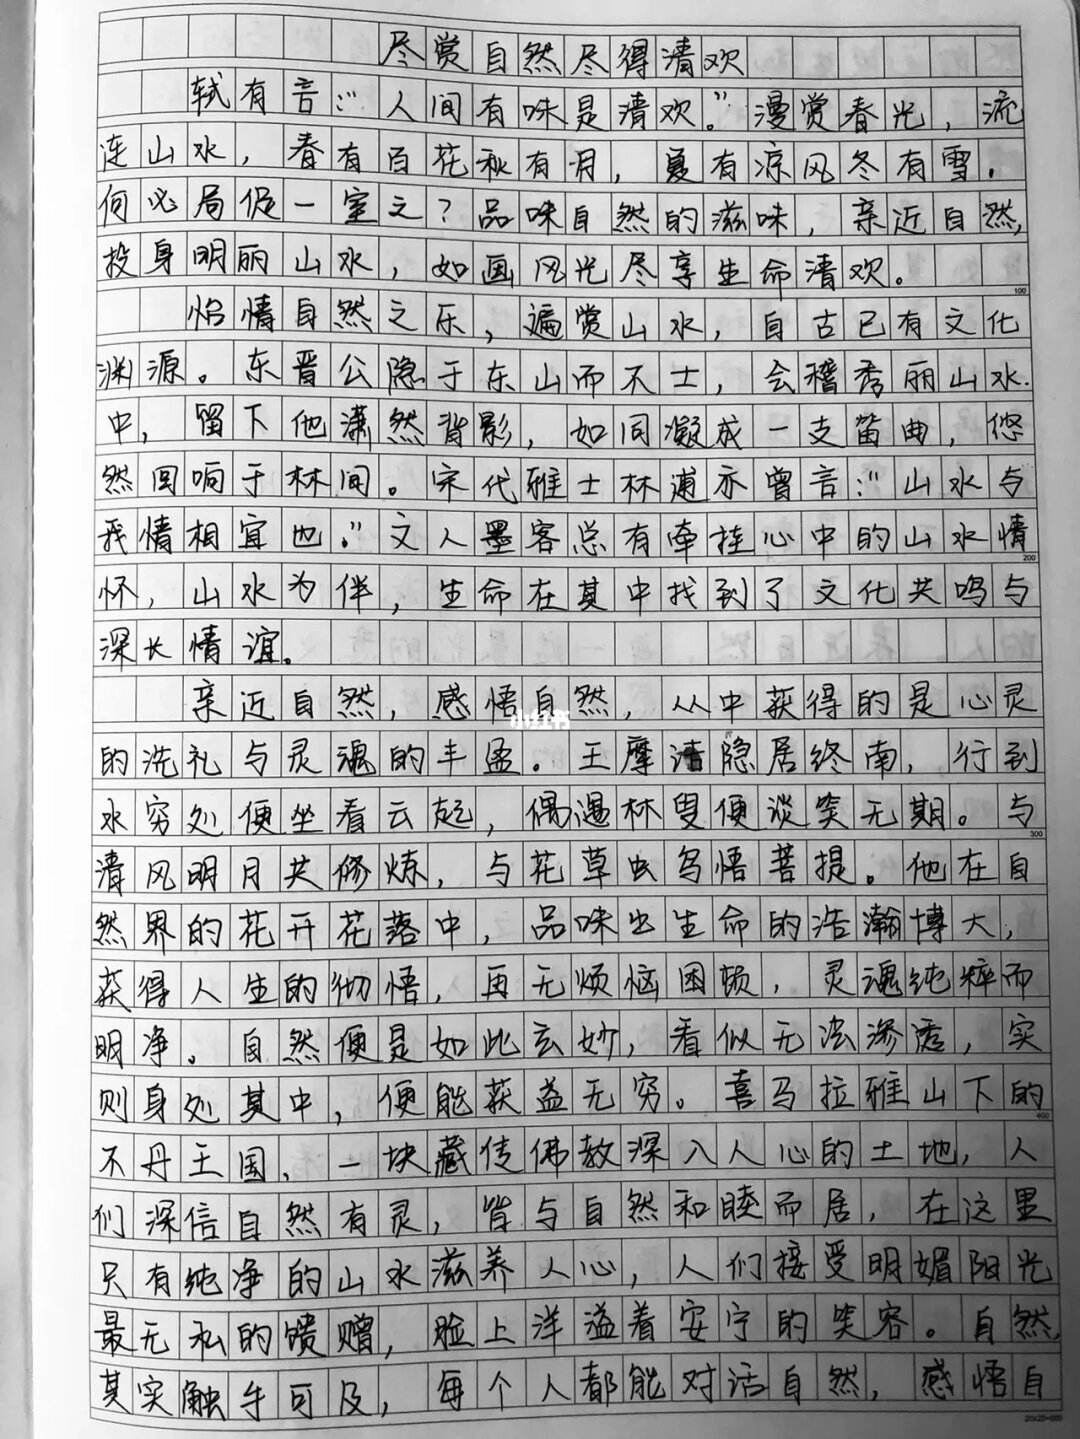 尽赏自然尽得清欢
轼有言：“人间有味是清欢。”漫赏春光，流
连山水，春有百花秋有月，夏有凉风冬有雪。
何必局促一室之？品味自然的滋味，亲近自然，
投身明丽山水，如画风光尽享生命清欢。
100
怡情自然之乐，遍赏山水，自古已有文化
渊源。东晋公隐于东山而不士，会稽秀丽山水
中，留下他潇然背影，如同凝成一支笛曲，悠
然回响于林间。宋代雅士林逋亦曾言：“山水与
我情相宜也。”文人墨客总有牵挂心中的山水情
200
怀，山水为伴，生命在其中找到了文化共鸣与
深长情谊。
亲近自然，感悟自然，从中获得的是心灵
小红书
的洗礼与灵魂的丰盈。王摩诘隐居终南，行到
水穷处便坐看云起，偶遇林叟便谈笑无期。与
300
清风明月共修炼，与花草虫鸟悟菩提。他在自
然界的花开花落中，品味出生命的浩瀚博大，
获得人生的彻悟，再无烦恼困顿，灵魂纯粹而
明净。自然便是如此玄妙，看似无法渗透，实
则身处其中，便能获益无穷。喜马拉雅山下的
400
不丹王国，一块藏传佛教深入人心的土地，人
们深信自然有灵，皆与自然和睦而居，在这里
只有纯净的山水滋养人心，人们接受明媚阳光
最无私的馈赠，脸上洋溢着安宁的笑容。自然，
其实触手可及，每个人都能对话自然，感悟自
20×25=500